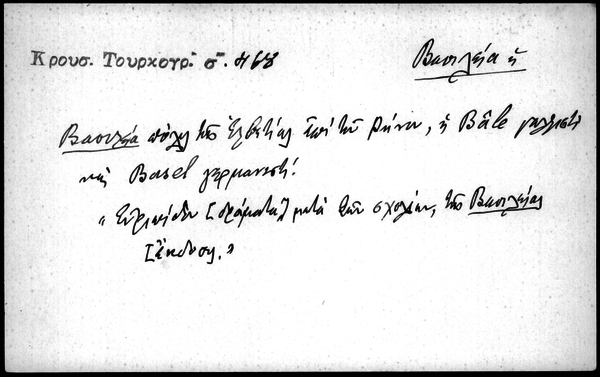 Κρουσ. Τουρκογρ. σ. 468
Βασιλεία ἡ
Βασιλεία πόλις τῆς Ἑλβετίας ἐπὶ τοῦ Ρήνου, ἡ Bâle γαλλιστὶ
καὶ Basel γερμανιστί.
« Εὐριπίδου [δράματα] μετὰ τῶν σχολίων, τῆς Βασιλείας
[ἔκδοση. »